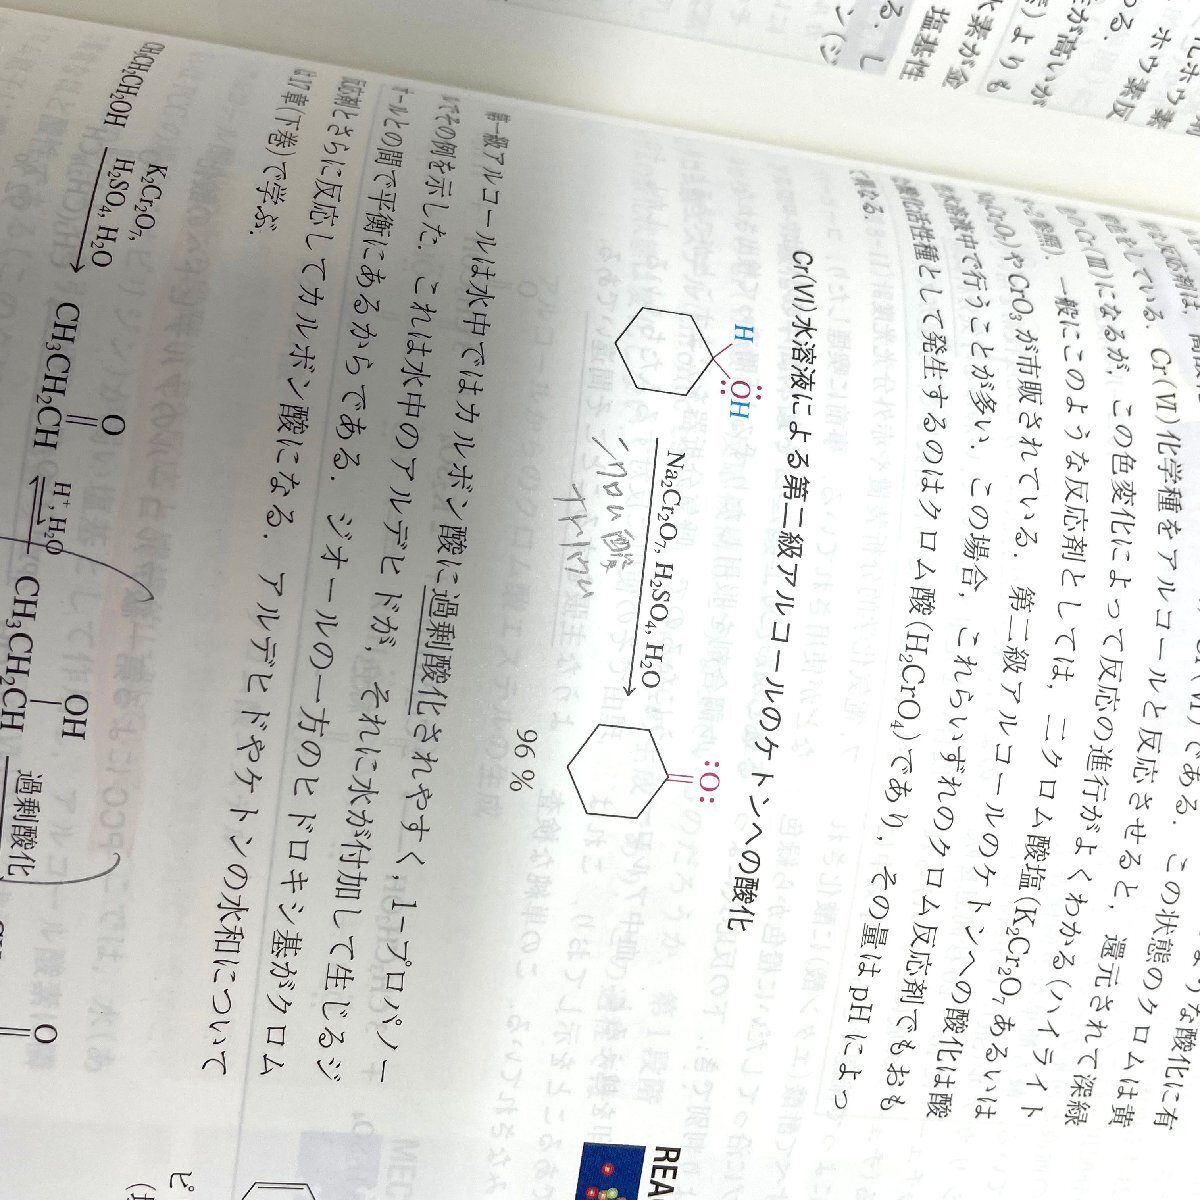 化ホウ素
ホウ素反
る.
が高いが
よりも
水素が金
塩基性
る. し
ような酸化に有
である. この状態のクロムは黄
している. Cr(VI)化学種をアルコールと反応させると, 還元されて深緑
Cr(III)になるが, この色変化によって反応の進行がよくわかる(ハイライト
参照). 一般にこのような反応剤としては, 二クロム酸塩(K₂Cr₂O₇あるいは
Na₂Cr₂O₇)やCrO₃が市販されている. 第二級アルコールのケトンへの酸化は酸
性水溶液中で行うことが多い. この場合, これらいずれのクロム反応剤でもおも
な酸化活性種として発生するのはクロム酸(H₂CrO₄)であり, その量はpHによっ
て異なる.
Cr(VI)水溶液による第二級アルコールのケトンへの酸化
H
:ÖH
Na₂Cr₂O₇, H₂SO₄, H₂O
:O:
96 %
第一級アルコールは水中ではカルボン酸に過剰酸化されやすく, 1-プロパノー
ルでその例を示した. これは水中のアルデヒドが, それに水が付加して生じるジ
オールとの間で平衡にあるからである. ジオールの一方のヒドロキシ基がクロム
反応剤とさらに反応してカルボン酸になる. アルデヒドやケトンの水和について
は17章(下巻)で学ぶ.
CH₃CH₂CH₂OH
K₂Cr₂O₇,
H₂SO₄, H₂O
O
CH₃CH₂CH
H⁺, H₂O
OH
CH₃CH₂CH
過剰酸化
O
REA
ピ